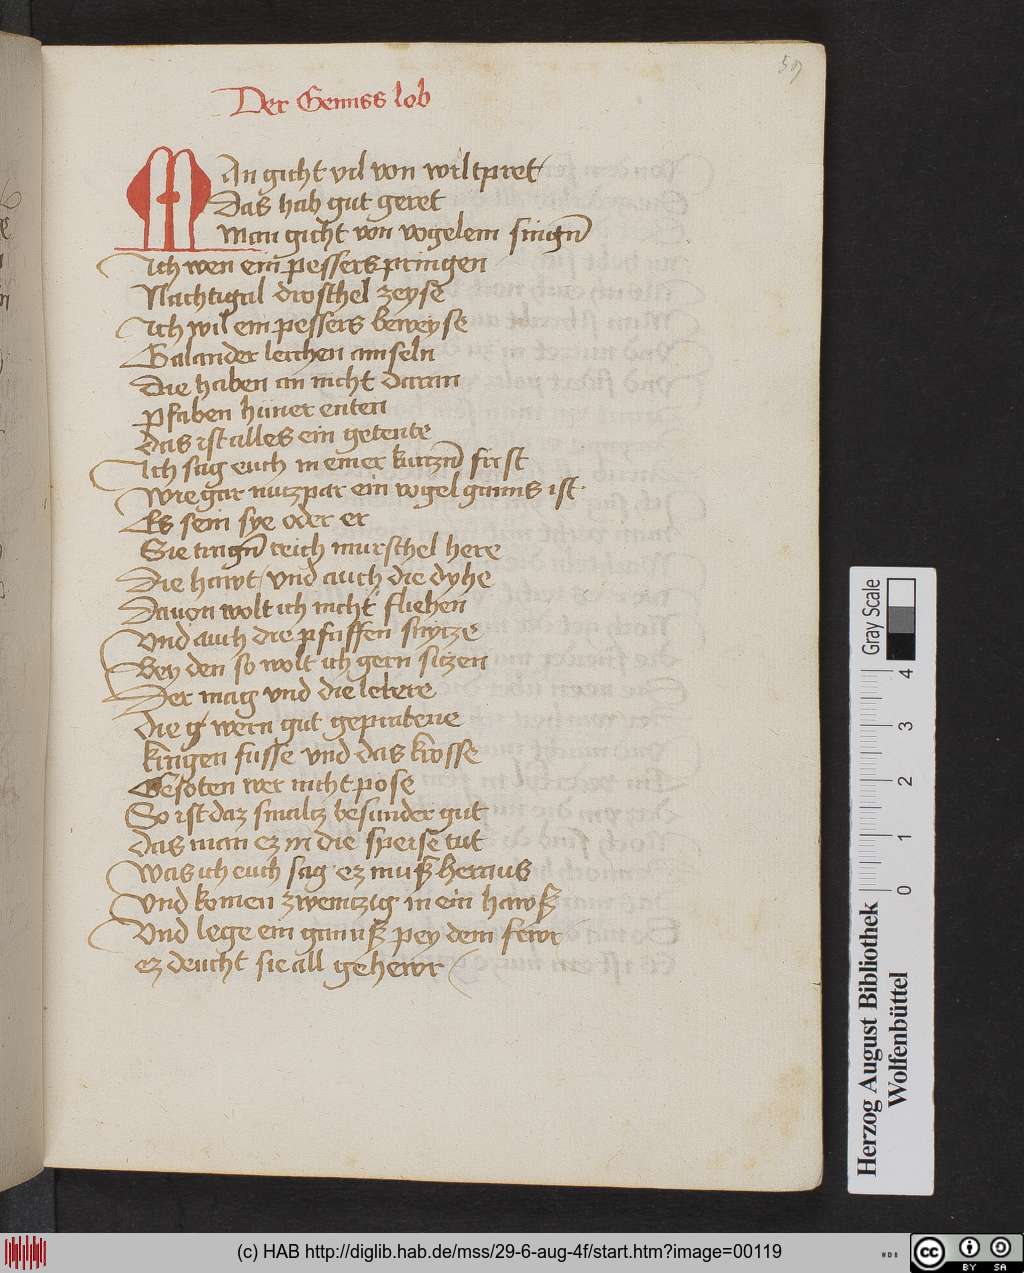 59
Der Gennss lob
MAn gicht vil von wiltpret
Das hab gut geret
Man gicht von vogelem singn̄
Ich wen ein pessers pringen
Nachtigal droschel zeyse
Ich wil ein pessers beweyse
Galander lerchen amseln
Die haben an nicht daran
Pfaben hüner enten
Das ist alles ein getente
Ich sag euch in einer kurtzn̄ frist
Wie gar nutzpar ein vogel ganns ist
Es sein sye oder er
Sie tragn̄ reich murschel here
Die hawt vnd auch die dyhe
Davon wolt ich nicht fliehen
Vnd auch die pfaffen snytze
Bey den so wolt ich gern sitzen
Der mag vnd die lebere
die wern gut gepratene
kragen fusse vnd das krosse
Gesoten wer nicht pose
So ist daz smaltz besunder gut
das man ez in die speise tut
Was ich euch sag ez muß heraus
Vnd komen zwentzig in ein hawß
Vnd lege ein ganuß pey dem fewr
ez deucht sie all gehewr
Gray Scale
4 3 2 1 0
Herzog August Bibliothek
Wolfenbüttel
(c) HAB http://diglib.hab.de/mss/29-6-aug-4f/start.htm?image=00119
WDB
cc BY SA